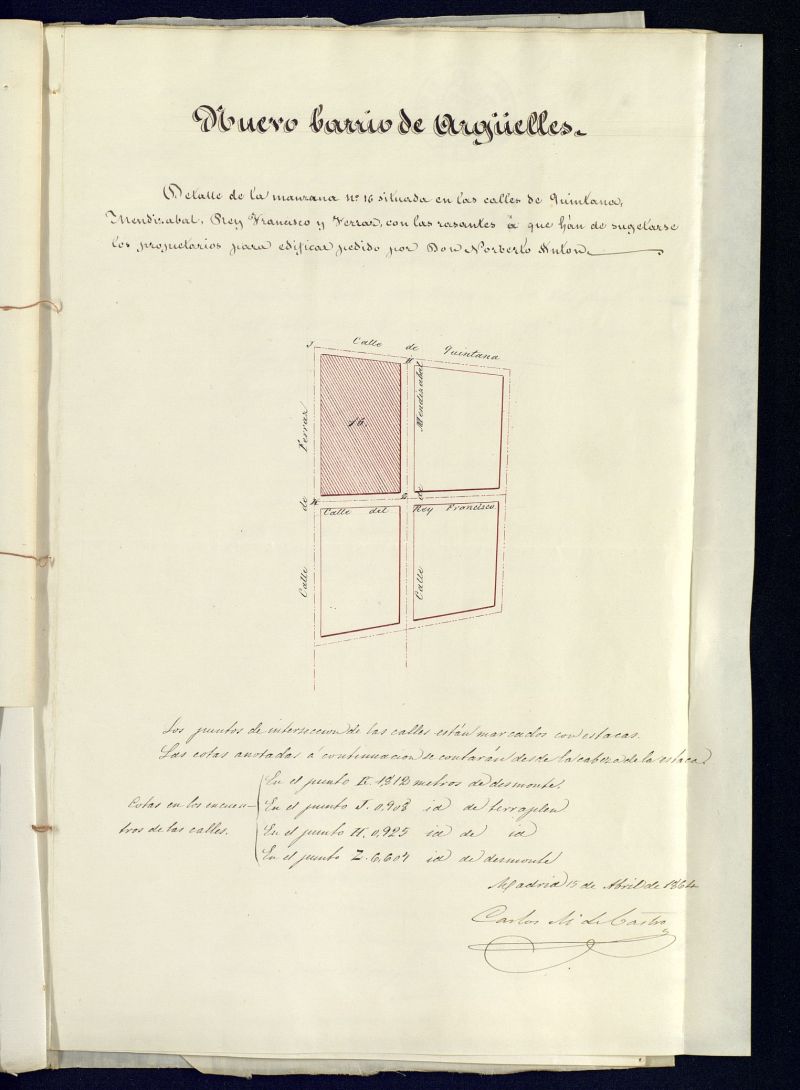 Nuevo barrio de Argüelles.
Detalle de la manzana nº 16 situada en las calles de Quintana,
Mendizabal, Rey Francisco y Ferraz, con las rasantes á que hán de sugetarse
los propietarios para edificar pedido por Don Norberto Anton.
J Calle de Quintana
H
16.
Calle de Ferraz
Calle de Mendizabal
K
Calle del Rey Francisco
Los puntos de interseccion de las calles están marcados con estacas.
Las cotas anotadas á continuacion se contarán desde la cabeza de la estaca.
Cotas en los encuen-
tros de las calles.
En el punto K. 1,312 metros de desmonte.
En el punto J. 0,903 id de terraplen
En el punto H. 0,925 id de id
En el punto Z. 6,607 id de desmonte
Madrid 15 de Abril de 1864
Carlos Mª de Castro